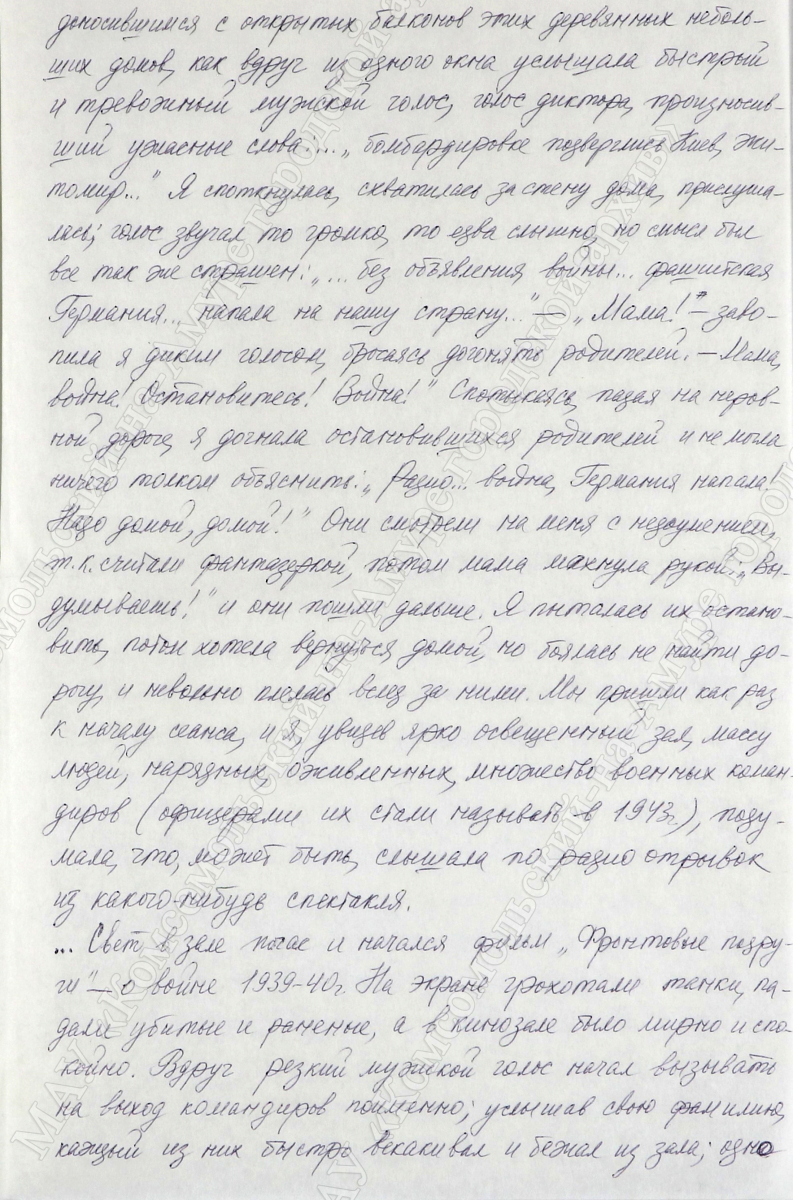 доносившимся с открытых балконов этих деревянных неболь-
ших домов, как вдруг из одного окна услышала быстрый
и тревожный мужской голос, голос диктора, произносив-
ший ужасные слова:... „бомбардировке подверглись Киев, Жи-
томир..." Я споткнулась, схватилась за стену дома, прислуша-
лась; голос звучал то громко, то едва слышно, но смысл был
все так же страшен: „... без объявления войны... фашистская
Германия... напала на нашу страну..." — „Мама!" — заво-
пила я диким голосом, бросаясь догонять родителей. — Мама,
война! Остановитесь! Война!" Спотыкаясь, падая на неров-
ной дороге, я догнала остановившихся родителей и не могла
ничего толком объяснить: „Радио... война, Германия напала!
Надо домой, домой!" Они смотрели на меня с недоумением,
т.к. считали фантазеркой, потом мама махнула рукой: „Вы-
думываешь!" и они пошли дальше. Я пыталась их остано-
вить, потом хотела вернуться домой, но боялась не найти до-
рогу, и невольно плелась вслед за ними. Мы пришли как раз
к началу сеанса, и я, увидев ярко освещенный зал, массу
людей, нарядных, оживленных, множество военных коман-
диров (офицерами их стали называть в 1943г.), поду-
мала, что, может быть, слышала по радио отрывок
из какого-нибудь спектакля.
... Свет в зале погас и начался фильм „Фронтовые подру-
ги" — о войне 1939-40г. На экране грохотали танки, па-
дали убитые и раненые, а в кинозале было мирно и спо-
койно. Вдруг резкий мужской голос начал вызывать
на выход командиров поименно; услышав свою фамилию,
каждый из них быстро вскакивал и бежал из зала; одно
МАУ «Комсомольский-на-Амуре городской архив»